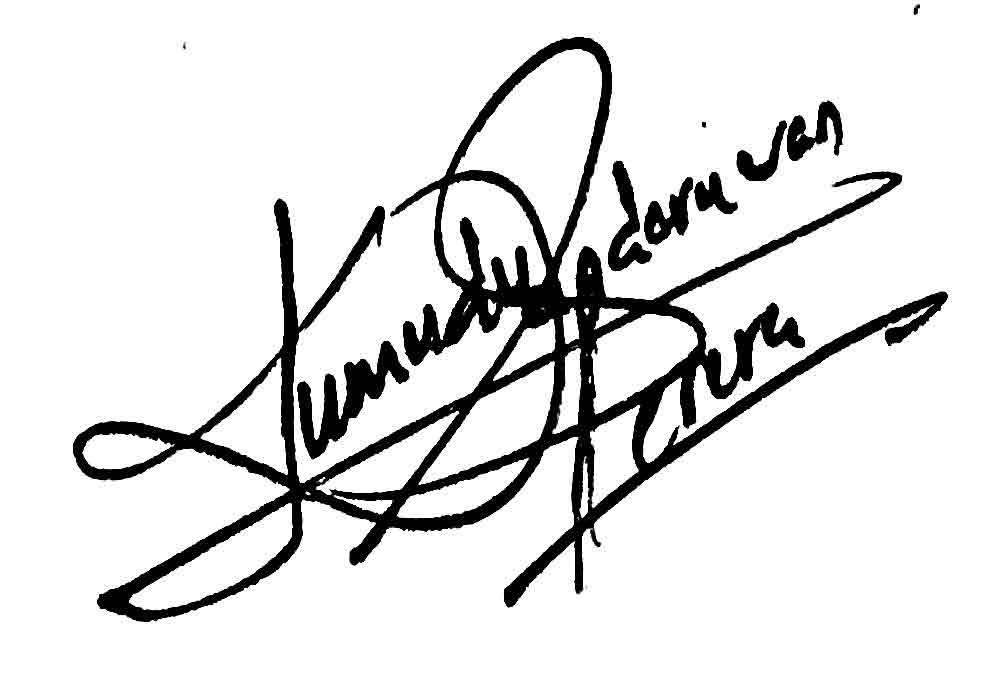 Kumudu Sadaruwan
Perera